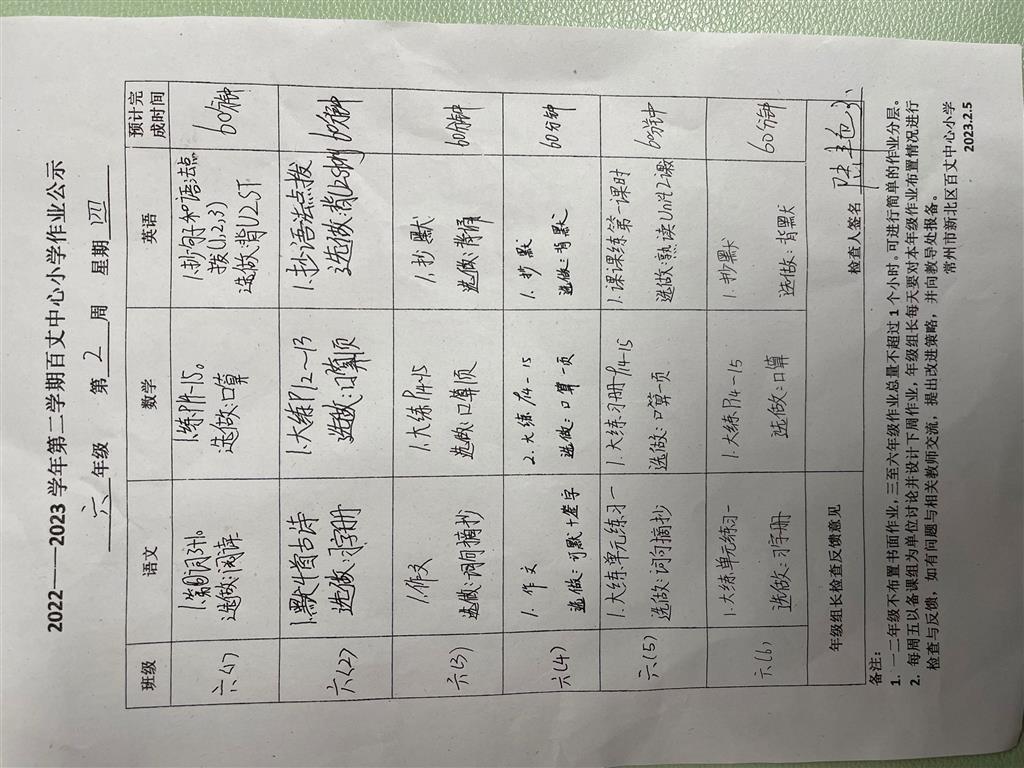 2022——2023学年第二学期百丈中心小学作业公示
六 年级 第 2 周 星期 四
班级 语文 数学 英语 预计完成时间
六(1)
选做:阅读
1.练P14-15。
选做:口算
1.抄句子和语法点
拨(1,2,3)
选做:背U2ST
60分钟
六(2)
选做:习字册
1.大练P12~13
选做:口算1页
1.抄语法点拨
选做:背U2
60分钟
六(3)
1.作文
选做:词句摘抄
1.大练P14-15
选做:口算1页
1.抄默
选做:背诵
60分钟
六(4)
1.作文
2.大练P14-15
选做:口算一页
1.抄默
选做:背默
60分钟
六(5)
1.大练单元练习一
选做:词句摘抄
1.大练习册P14-15
选做:口算一页
1.课课练第一课时
选做:熟读Unit2课文
60分钟
六(6)
1.大练单元练习一
选做:习字册
1.大练P14-15
选做:口算
1.抄默
选做:背默
60分钟
年级组长检查反馈意见 检查人签名
备注:
1. 一二年级不布置书面作业,三至六年级作业总量不超过1个小时。可进行简单的作业分层。
2. 每周五以备课组为单位讨论并设计下周作业,年级组长每天要对本年级作业布置情况进行
检查与反馈,如有问题与相关教师交流,提出改进策略,并向教导处报备。
常州市新北区百丈中心小学
2023.2.5